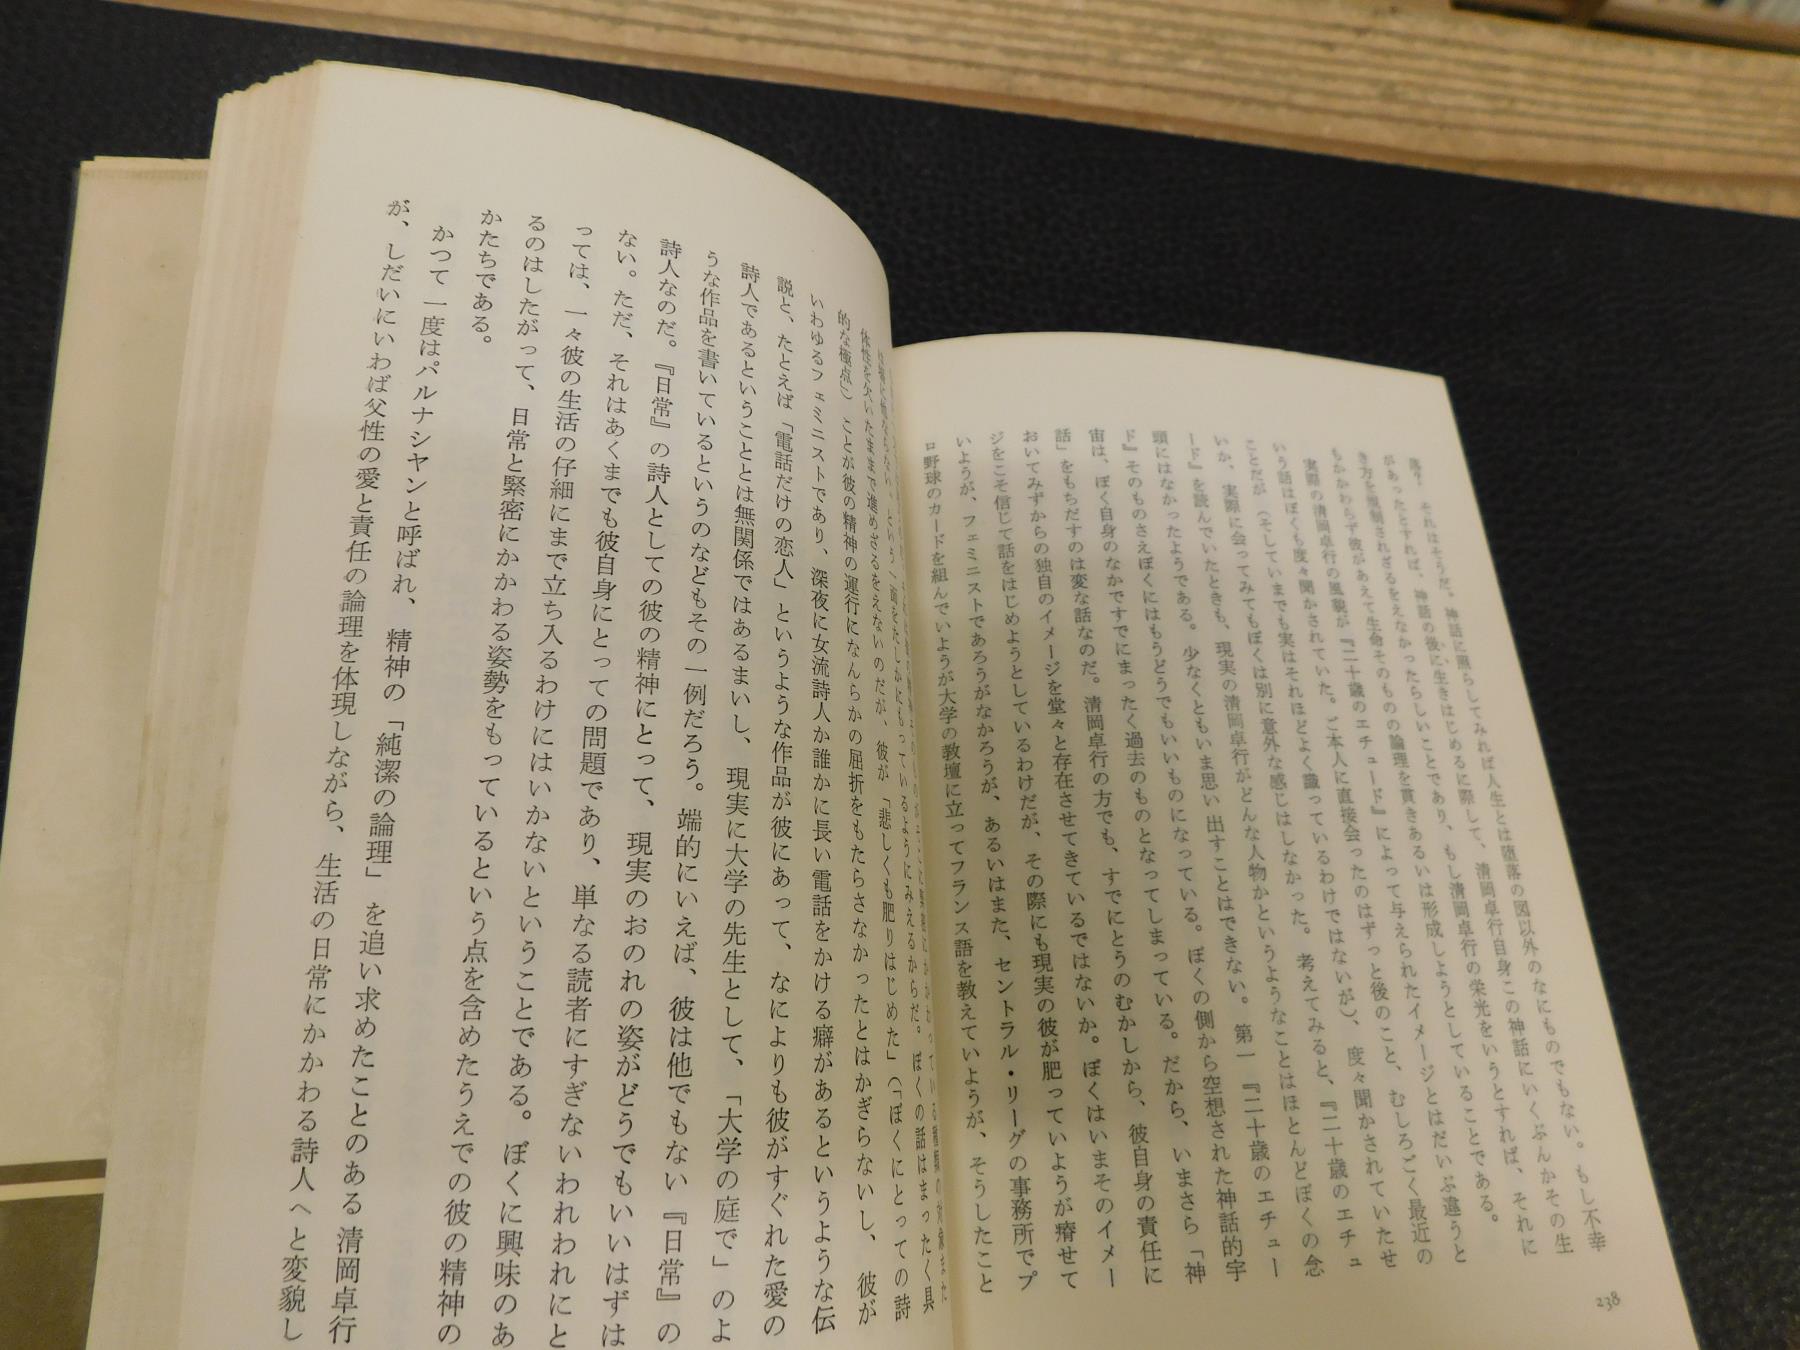 落？　それはそうだ。神話に照らしてみれば人生とは堕落の図以外のなにものでもない。もし不幸
があったとすれば、神話の後に生きはじめるに際して、清岡卓行自身この神話にいくぶんかその生
き方を規制されざるをえなかったらしいことであり、もし清岡卓行の栄光をいうとすれば、それに
もかかわらず彼があえて生命そのものの論理を貫きあるいは形成しようとしていることである。
実際の清岡卓行の風貌が『二十歳のエチュード』によって与えられたイメージとはだいぶ違うと
いう話はぼくも度々聞かされていた。ご本人に直接会ったのはずっと後のこと、むしろごく最近の
ことだが（そしていまでも実はそれほどよく識っているわけではないが）、度々聞かされていたせ
いか、実際に会ってみてもぼくは別に意外な感じはしなかった。考えてみると、『二十歳のエチュ
ード』を読んでいたときも、現実の清岡卓行がどんな人物かというようなことはほとんどぼくの念
頭にはなかったようである。少なくともいま思い出すことはできない。第一『二十歳のエチュー
ド』そのものさえぼくにはもうどうでもいいものになっている。ぼくの側から空想された神話的宇
宙は、ぼく自身のなかですでにまったく過去のものとなってしまっている。だから、いまさら「神
話」をもちだすのは変な話なのだ。清岡卓行の方でも、すでにとうのむかしから、彼自身の責任に
おいてみずからの独自のイメージを堂々と存在させてきているではないか。ぼくはいまそのイメー
ジをこそ信じて話をはじめようとしているわけだが、その際にも現実の彼が肥っていようが瘠せて
いようが、フェミニストであろうがなかろうが、あるいはまた、セントラル・リーグの事務所でプ
ロ野球のカードを組んでいようが大学の教壇に立ってフランス語を教えていようが、そうしたこと
238
体性を欠いたままで進めざるをえないのだが、彼が「悲しくも肥りはじめた」（「ぼくにとっての詩
的な極点」）ことが彼の精神の運行になんらかの屈折をもたらさなかったとはかぎらないし、彼が
いわゆるフェミニストであり、深夜に女流詩人か誰かに長い電話をかける癖があるというような伝
説と、たとえば「電話だけの恋人」というような作品が彼にあって、なによりも彼がすぐれた愛の
詩人であるということとは無関係ではあるまいし、現実に大学の先生として、「大学の庭で」のよ
うな作品を書いているというのなどもその一例だろう。端的にいえば、彼は他でもない『日常』の
詩人なのだ。『日常』の詩人としての彼の精神にとって、現実のおのれの姿がどうでもいいはずは
ない。ただ、それはあくまでも彼自身にとっての問題であり、単なる読者にすぎないわれわれにと
っては、一々彼の生活の仔細にまで立ち入るわけにはいかないということである。ぼくに興味のあ
るのはしたがって、日常と緊密にかかわる姿勢をもっているという点を含めたうえでの彼の精神の
かたちである。
かつて一度はパルナシヤンと呼ばれ、精神の「純潔の論理」を追い求めたことのある清岡卓行
が、しだいにいわば父性の愛と責任の論理を体現しながら、生活の日常にかかわる詩人へと変貌し